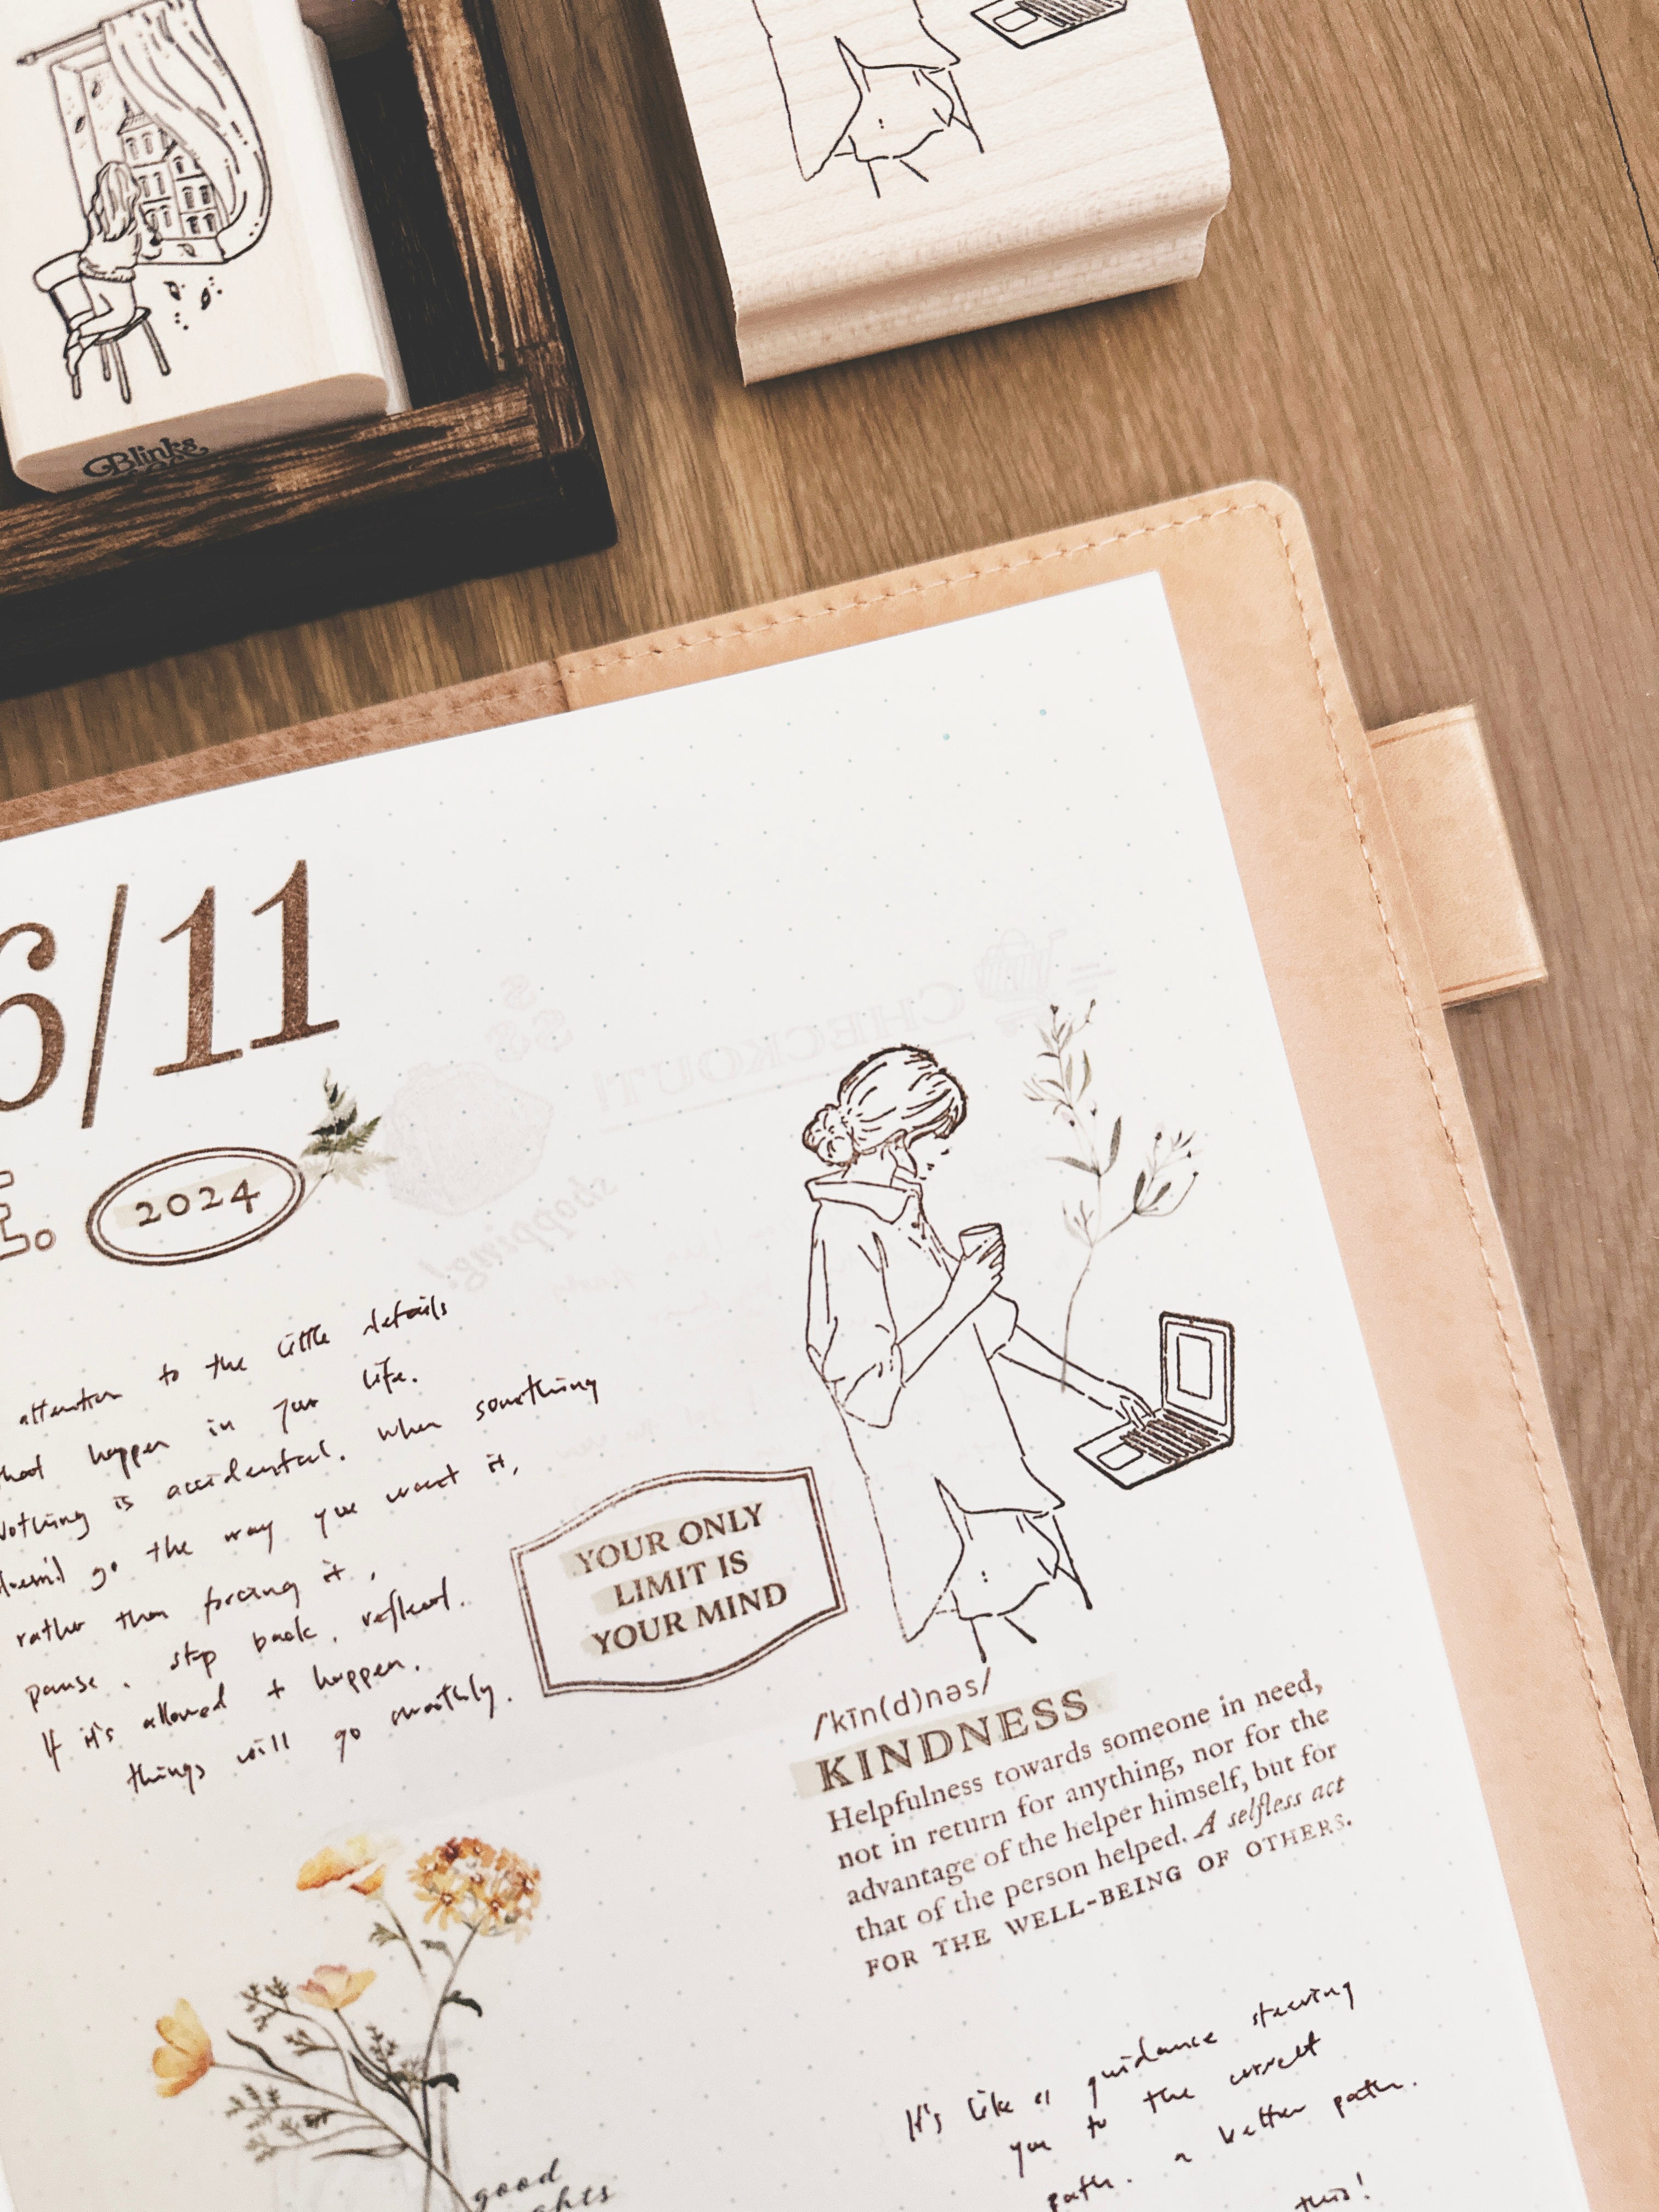 Blinks
6/11
E.
2024
attention to the little details
that happen in your life.
Nothing is accidental. When something
doesn't go the way you want it,
rather than forcing it,
pause. step back. reflect.
If it's allowed to happen,
things will go smoothly.
YOUR ONLY
LIMIT IS
YOUR MIND
/'kīn(d)nəs/
KINDNESS
Helpfulness towards someone in need,
not in return for anything, nor for the
advantage of the helper himself, but for
that of the person helped. A selfless act
FOR THE WELL-BEING OF OTHERS.
It's like a guidance steering
you to the correct
path. a better path.
this!
good
CHECKOUT!
shopping!